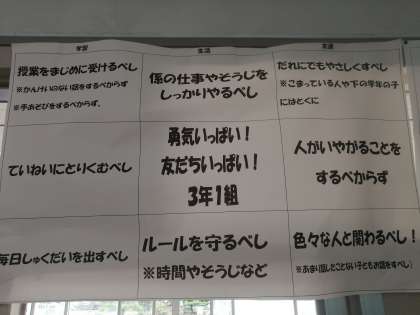 学習
授業をまじめに受けるべし
※かんけいのない話をするべからず
※手あそびをするべからず。
生活
係の仕事やそうじを
しっかりやるべし
友達
だれにでもやさしくすべし
※こまっている人や下の学年の子
にはとくに
ていねいにとりくむべし
勇気いっぱい!
友だちいっぱい!
3年1組
人がいやがることを
するべからず
毎日しゅくだいを出すべし
ルールを守るべし
※時間やそうじなど
色々な人と関わるべし!
※あまり話したことない子ともお話をするべし)